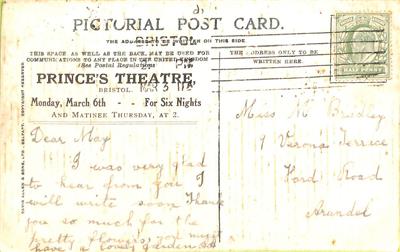 PICTORIAL POST CARD.
THE ADDRESS ONLY TO BE WRITTEN ON THIS SIDE
BRISTOL
THIS SPACE, AS WELL AS THE BACK, MAY BE USED FOR
COMMUNICATIONS TO ANY PLACE IN THE UNITED KINGDOM
(See Postal Regulations)
PRINCE'S THEATRE,
BRISTOL.
Monday, March 6th - - For Six Nights
AND MATINEE THURSDAY, AT 2.
Dear May
I was very glad
to hear from you I
will write soon Thank
you so much for the
pretty flowers, you must
have a lovely garden
THE ADDRESS ONLY TO BE
WRITTEN HERE.
HALFPENNY
Miss M Bradley
9 Verona Terrace
Ford Road
Arundel